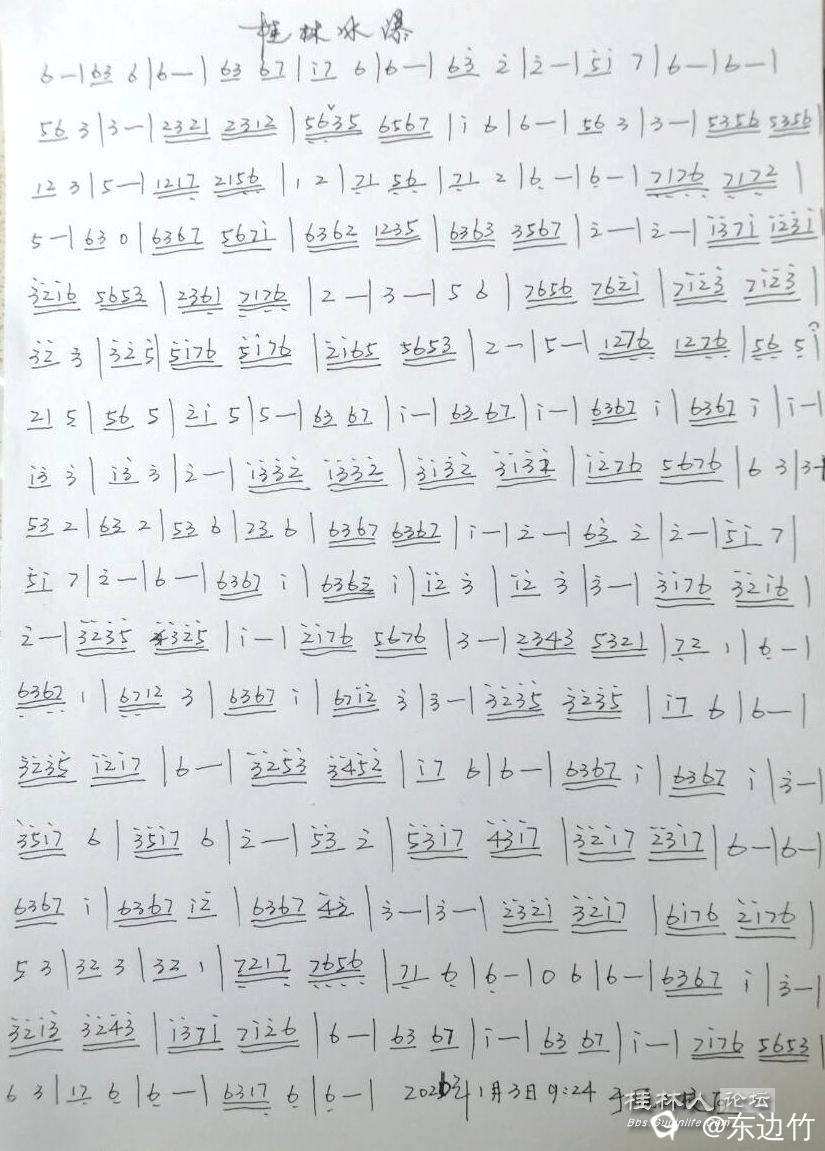 桂林水瀑
6 — | 63 6 | 6 — | 63 67 | i7 6 | 6 — | 63 2 | 2 — | 5i 7 | 6 — | 6 — |
56 3 | 3 — | 2321 2312 | 5635 6567 | i 6 | 6 — | 56 3 | 3 — | 5356 5356 |
12 3 | 5 — | 1217 2156 | 1 2 | 71 56 | 71 2 | 6 — | 6 — | 7176 7172 |
5 — | 63 0 | 6367 567i | 6362 1235 | 6363 3567 | 2 — | 2 — | i37i i23i |
3216 5653 | 2361 7176 | 2 — | 3 — | 5 6 | 7656 762i | 7i23 7i23 |
32 3 | 32 5 | 5i76 5i76 | 2i65 5653 | 2 — | 5 — | 1276 1276 | 56 5 |
21 5 | 56 5 | 2i 5 | 5 — | 63 67 | i — | 63 67 | i — | 6367 i | 6367 i | i —
i3 3 | i3 3 | 2 — | i332 i332 | 3i32 3i32 | i276 5676 | 6 3 | 3 —
53 2 | 63 2 | 53 6 | 23 6 | 6367 6367 | i — | 2 — | 63 2 | 2 — | 5i 7 |
5i 7 | 2 — | 6 — | 6367 i | 6362 i | i2 3 | i2 3 | 3 — | 3i76 32i6 |
2 — | 3235 4325 | i — | 2i76 5676 | 3 — | 2343 5321 | 72 1 | 6 — |
6367 1 | 6712 3 | 6367 i | 67i2 3 | 3 — | 3235 3235 | i7 6 | 6 — |
3235 i2i7 | 6 — | 3253 3452 | i7 6 | 6 — | 6367 i | 6367 i | 3 — |
35i7 6 | 35i7 6 | 2 — | 53 2 | 53i7 43i7 | 32i7 23i7 | 6 — | 6 — |
6367 i | 6367 i2 | 6367 42 | 3 — | 3 — | 232i 32i7 | 6i76 2i76 |
5 3 | 32 3 | 32 1 | 7217 7656 | 71 6 | 6 — | 0 6 | 6 — | 6367 i | 3 — |
32i3 3243 | i37i 7i26 | 6 — | 63 67 | i — | 63 67 | i — | 7i76 5653 |
6 3 | 12 6 | 6 — | 6317 6 | 6 — | 2026年1月3日9:24 于
桂林人论坛
Bbs.Guilinlife.com
@东边竹